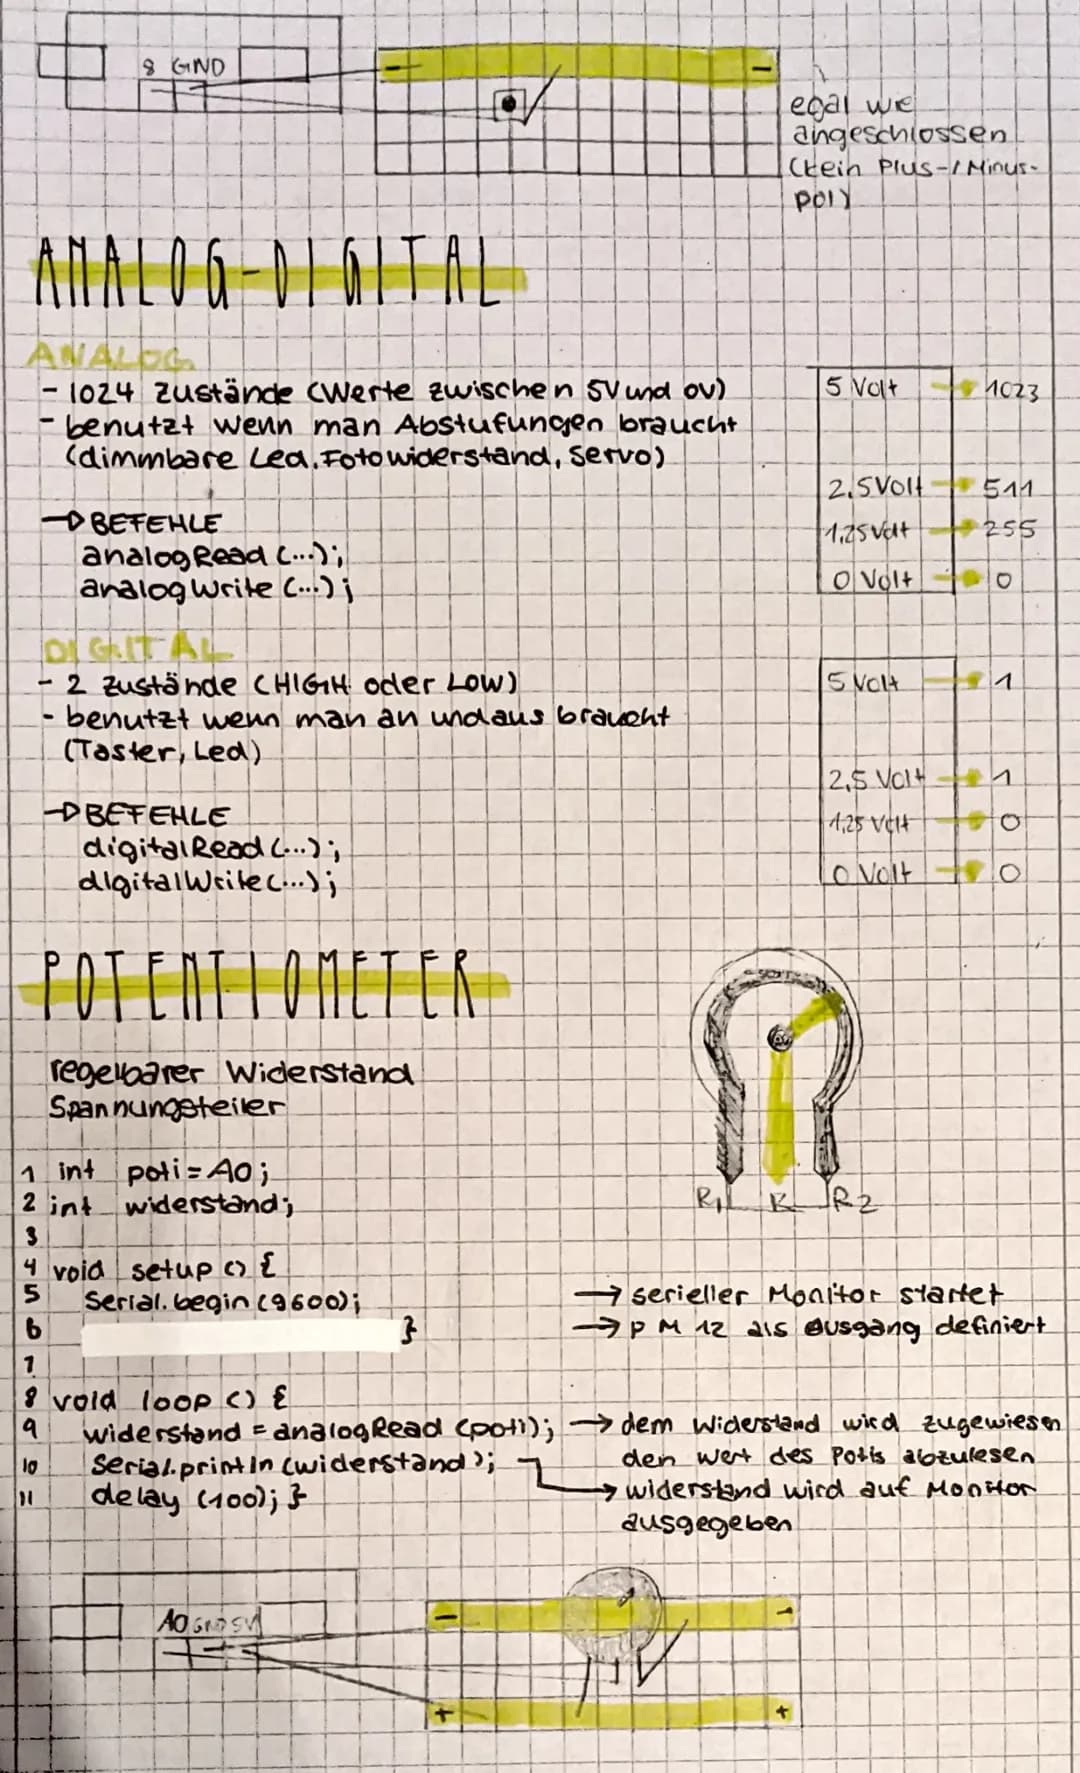 8 GND
- -
egal wie
angeschlossen
(kein Plus-/Minus-
pol)
ANALOG-DIGITAL
ANALOG
- 1024 Zustände (Werte zwischen 5V und 0V)
- benutzt wenn man Abstufungen braucht
(dimmbare Led, Fotowiderstand, Servo)
→ BEFEHLE
analogRead (...);
analogWrite (...);
5 Volt → 1023
2,5 Volt → 511
1,25 Volt → 255
0 Volt → 0
DIGITAL
- 2 Zustände (HIGH oder LOW)
- benutzt wenn man an und aus braucht
(Taster, Led)
→ BEFEHLE
digitalRead (...);
digitalWrite (...);
5 Volt → 1
2,5 Volt → 1
1,25 Volt → 0
0 Volt → 0
POTENTIOMETER
regelbarer Widerstand
Spannungsteiler
R1 R R2
1 int poti = A0;
2 int widerstand;
3
4 void setup () {
5 Serial.begin (9600); → serieller Monitor startet
6 } → PM 12 als Ausgang definiert
7
8 void loop () {
9 widerstand = analogRead (poti); → dem Widerstand wird zugewiesen
den Wert des Potis abzulesen
10 Serial.println (widerstand); → widerstand wird auf Monitor
ausgegeben
11 delay (100); }
A0 GND 5V
- -
+ +